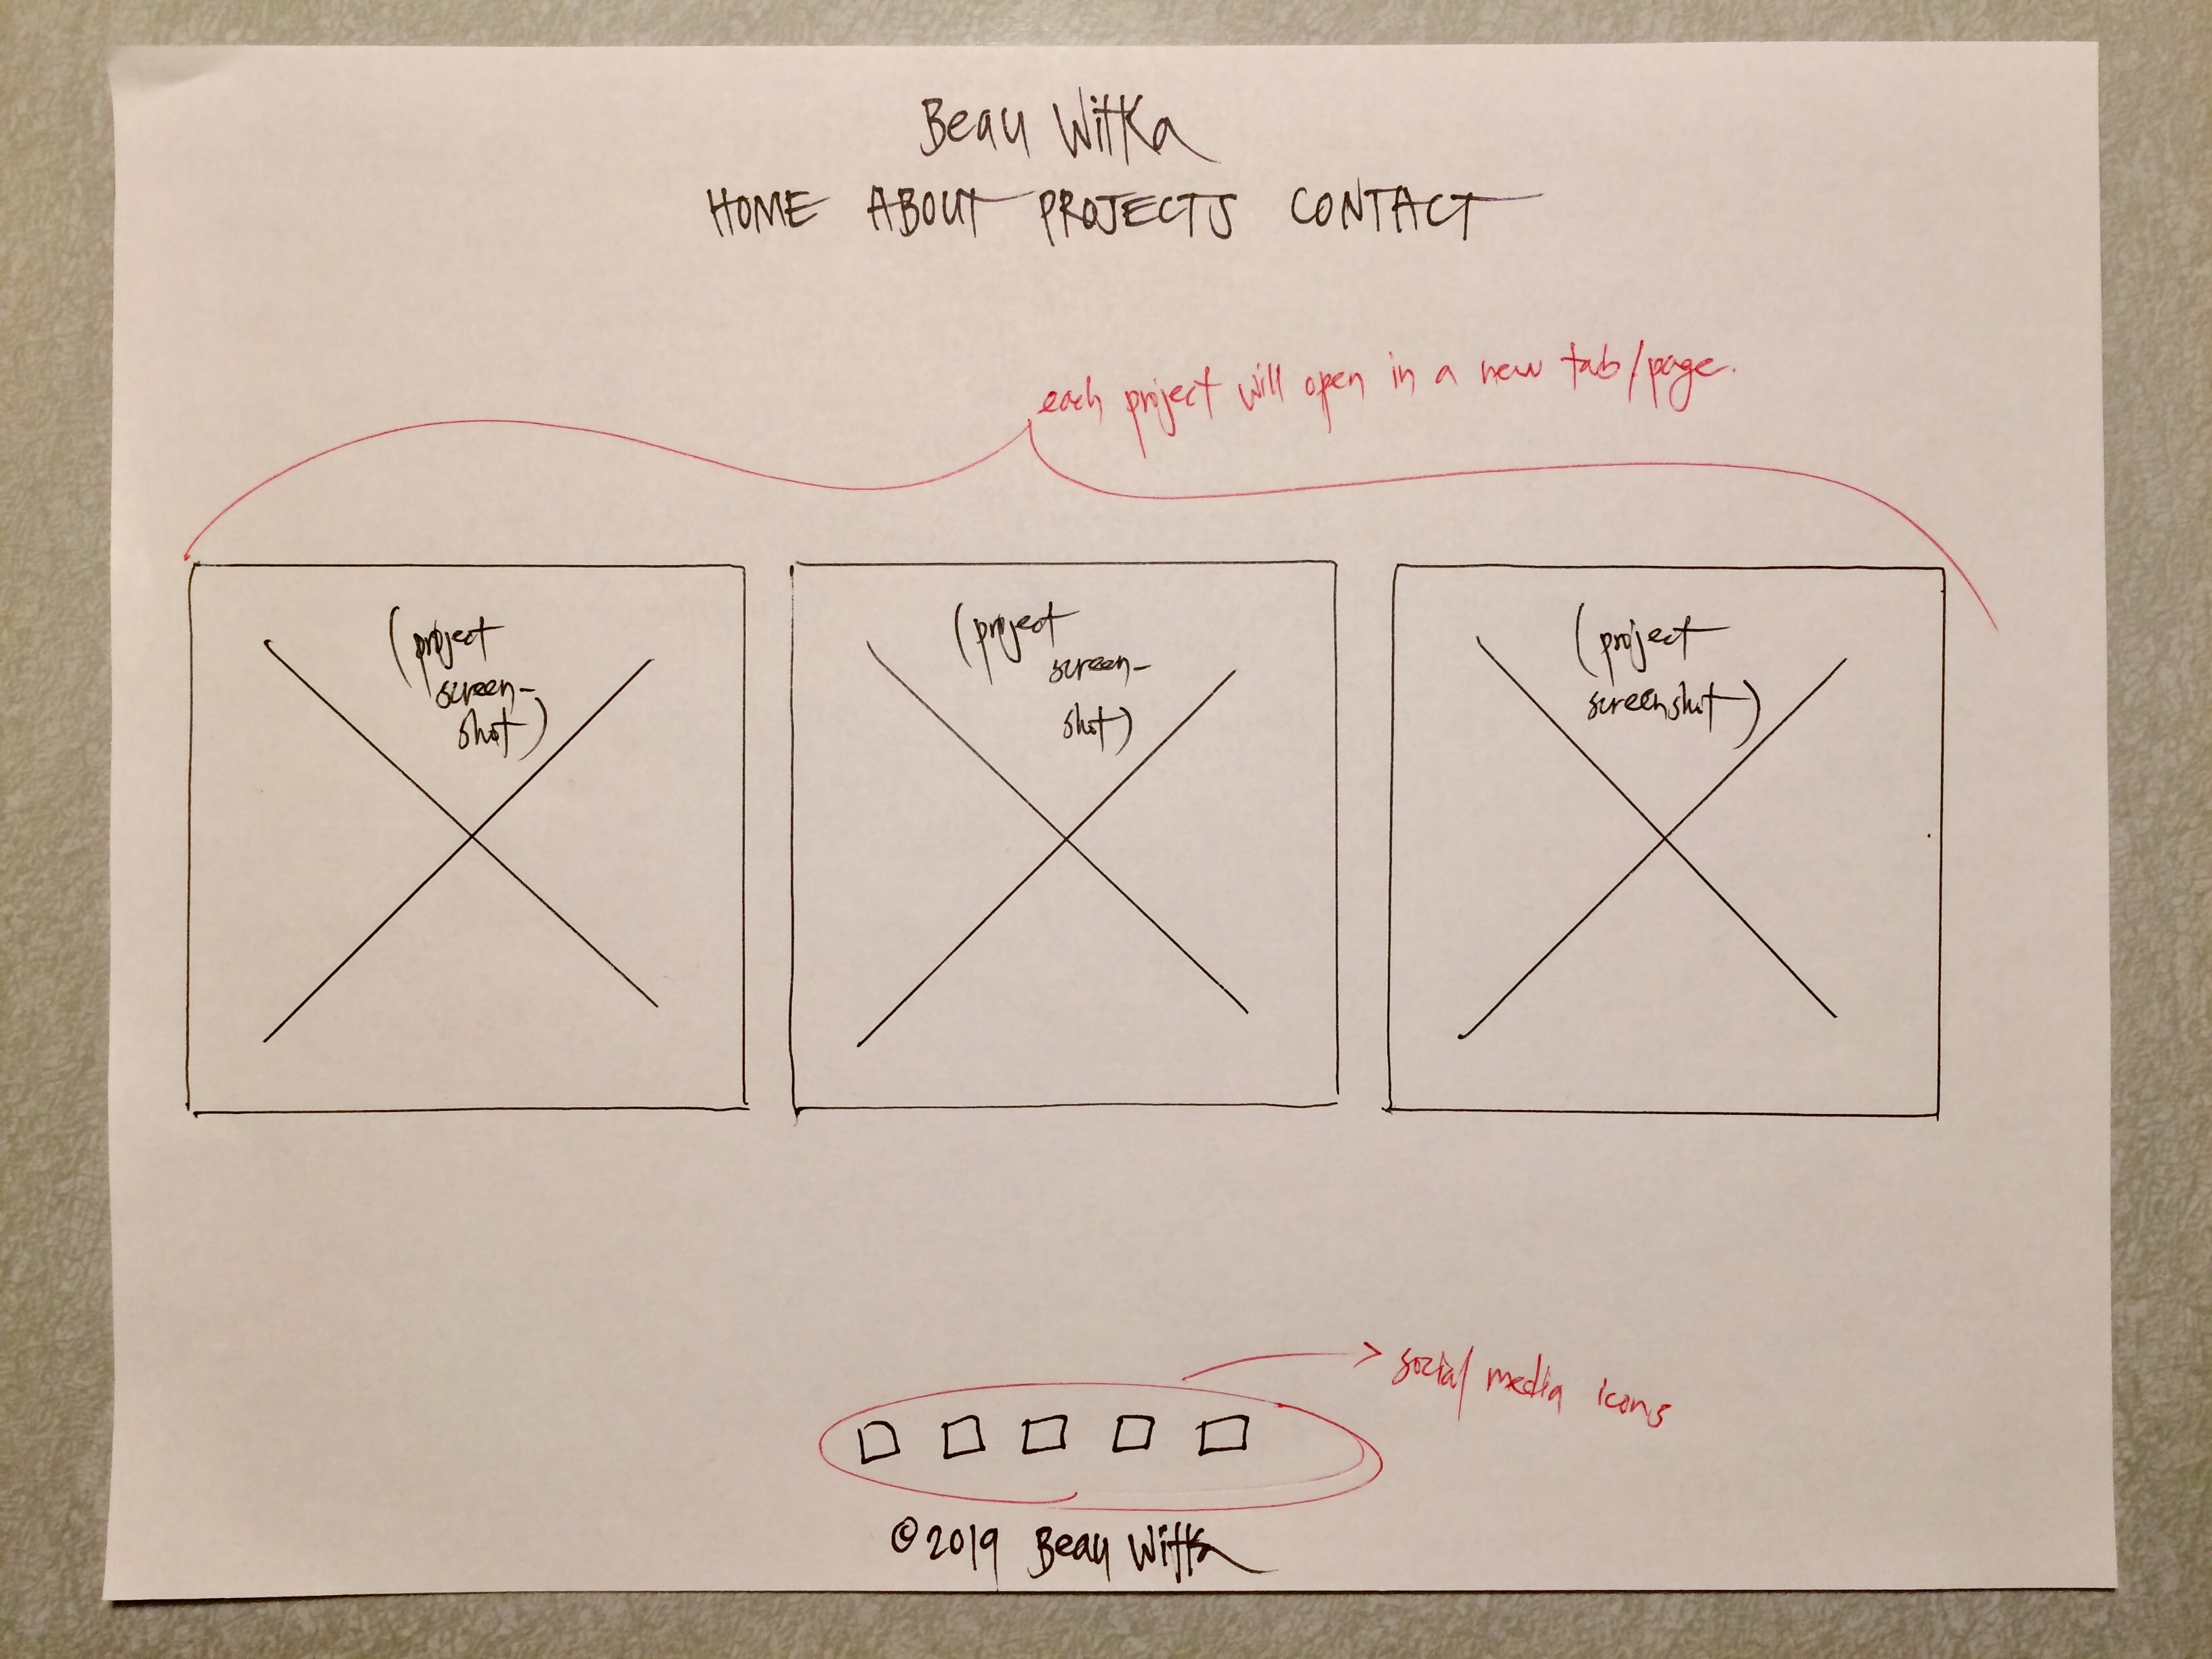 Beau Witka
HOME ABOUT PROJECTS CONTACT
each project will open in a new tab/page.
(project
screen-
shot)
(project
screen-
shot)
(project
screenshot)
social media icons
©2019 Beau Witka